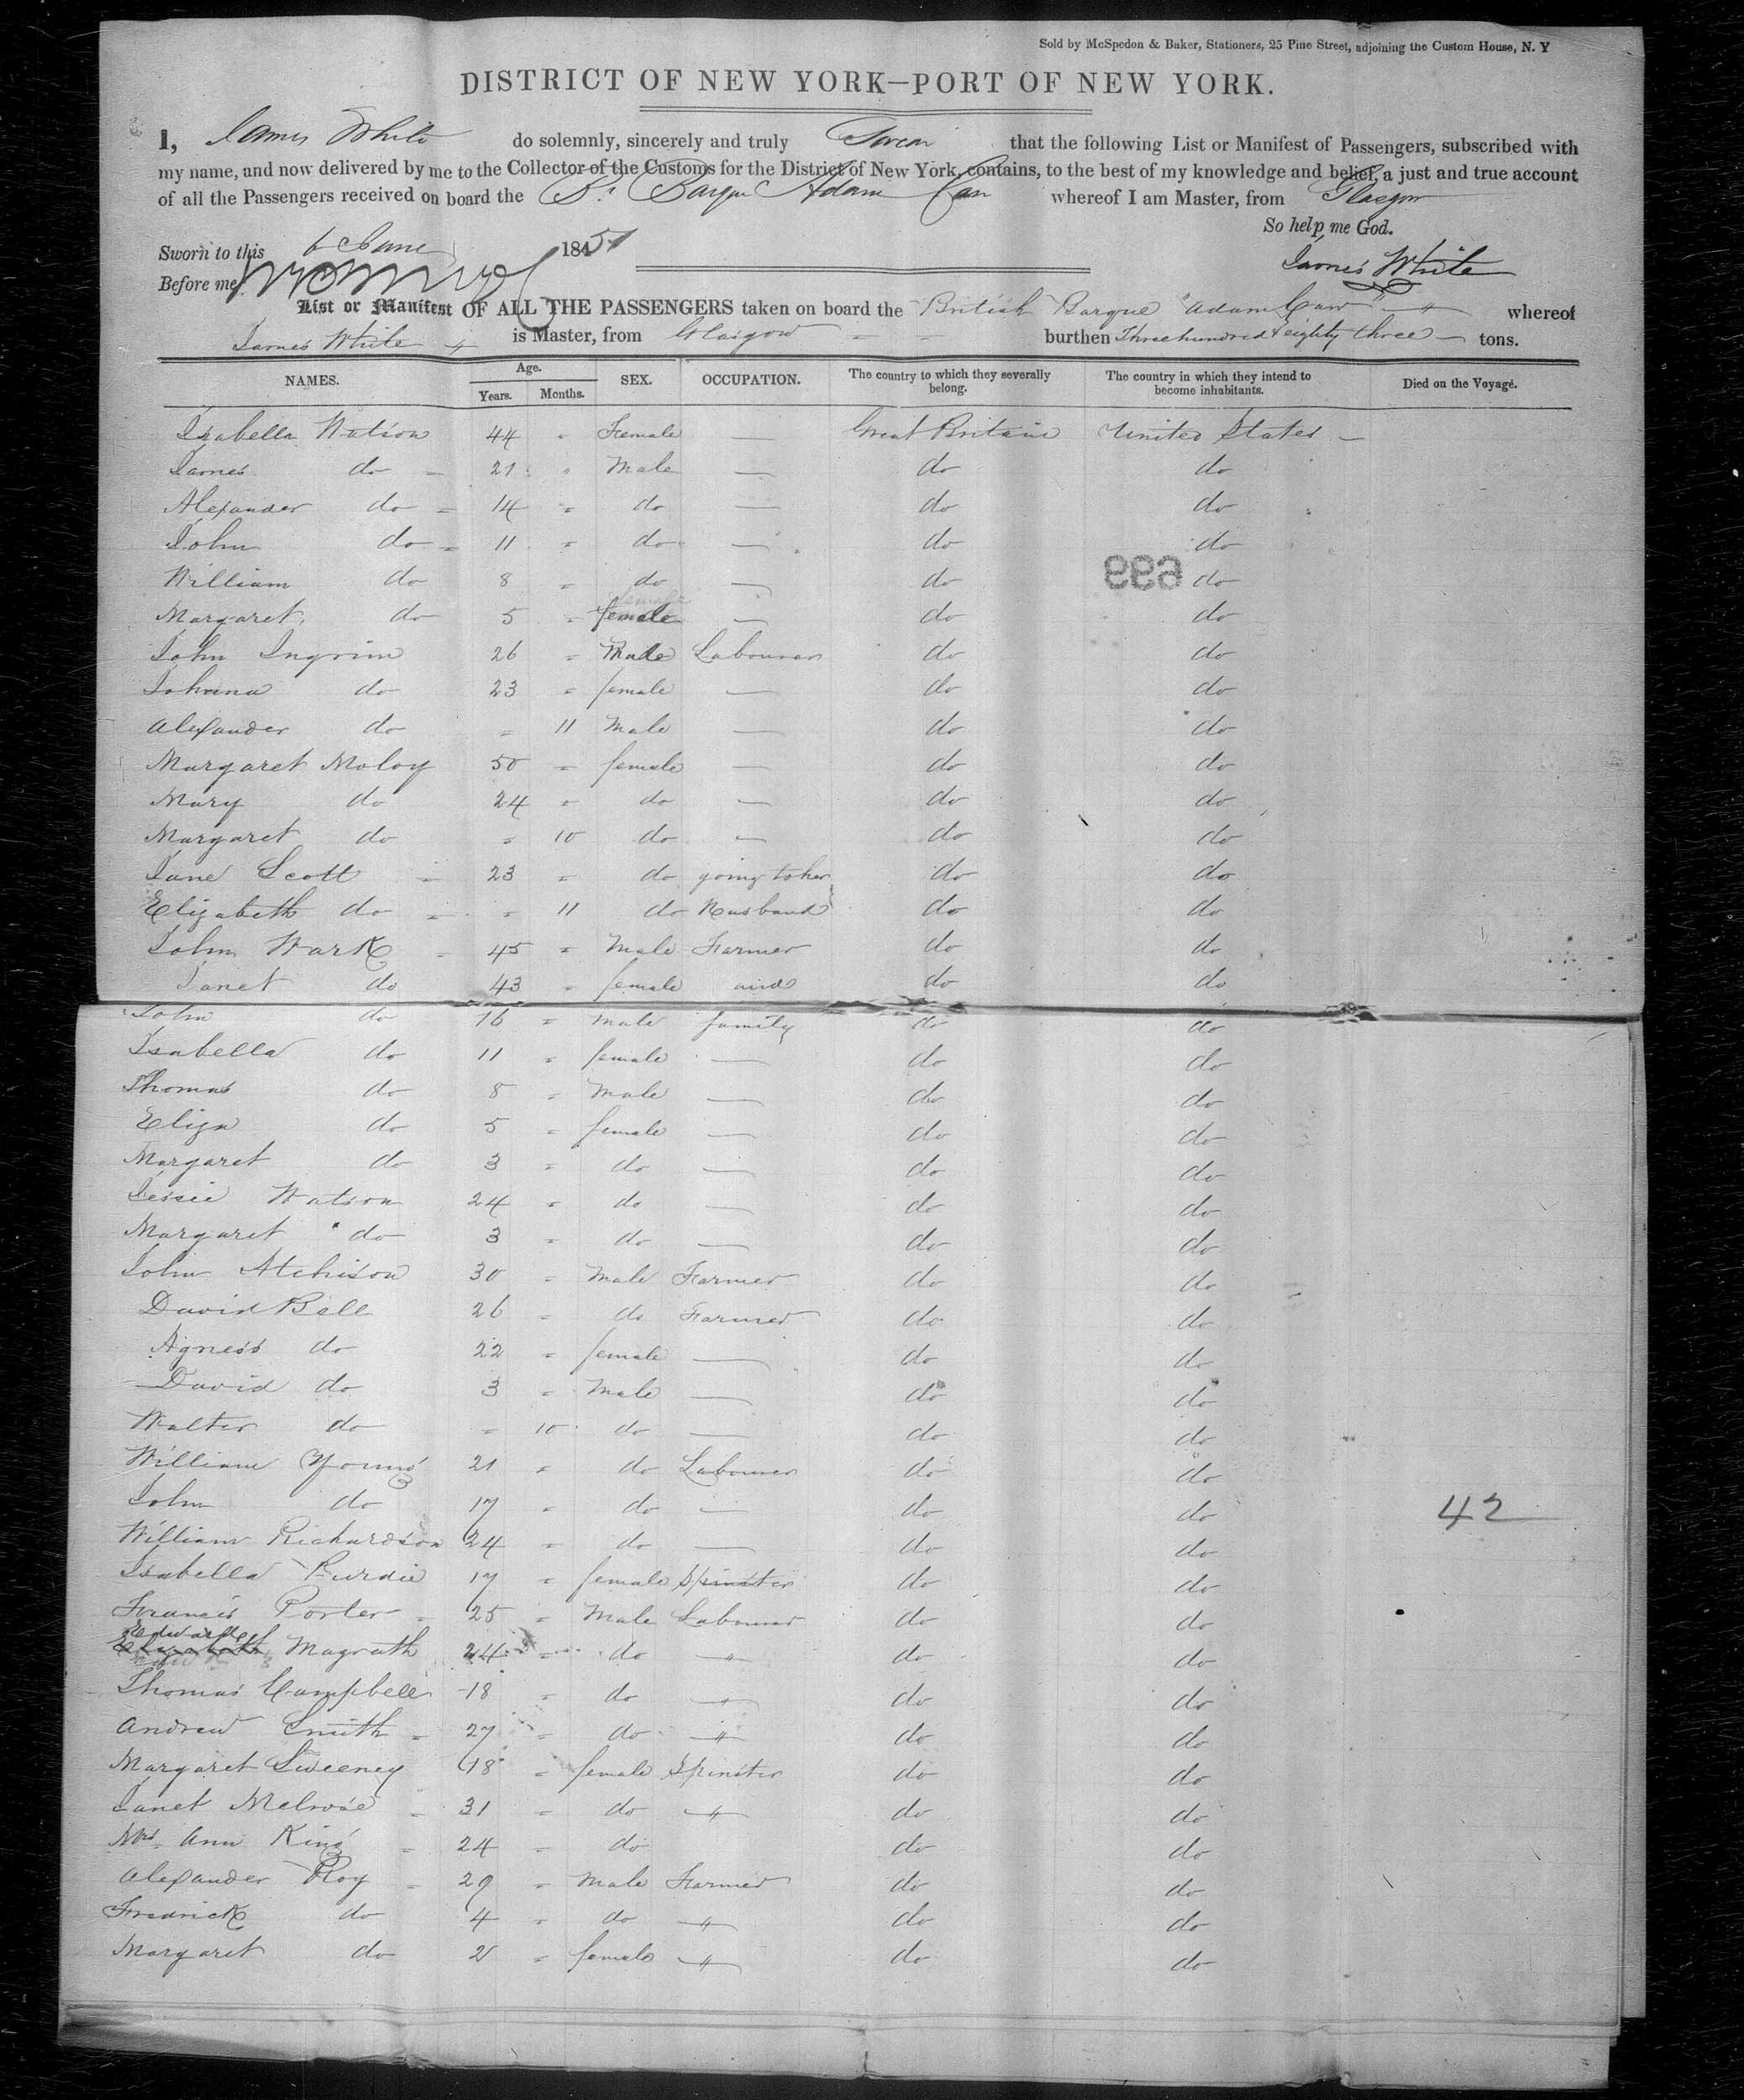 Sold by McSpedon & Baker, Stationers, 25 Pine Street, adjoining the Custom House, N. Y
DISTRICT OF NEW YORK—PORT OF NEW YORK.
I, James White do solemnly, sincerely and truly Swear that the following List or Manifest of Passengers, subscribed with
my name, and now delivered by me to the Collector of the Customs for the District of New York, contains, to the best of my knowledge and belief, a just and true account
of all the Passengers received on board the Br Barque Adam Carr whereof I am Master, from Glasgow
So help me God.
Sworn to this 6 June 1851
James White
Before me,
List or Manifest OF ALL THE PASSENGERS taken on board the British Barque "Adam Carr" whereof
James White is Master, from Glasgow burthen Three hundred & eighty three tons.
NAMES. Age. Years. Months. SEX. OCCUPATION. The country to which they severally belong. The country in which they intend to become inhabitants. Died on the Voyage.
Isabella Watson 44 " Female — Great Britain United States —
James do 21 " Male — do do
Alexander do 14 " do — do do
John do 11 " do — do do
William do 8 " do — do 699 do
Margaret do 5 " female — do do
John Ingrim 26 " Male Labourer do do
Johana do 23 " female — do do
Alexander do " 11 Male — do do
Margaret Moloy 50 " female — do do
Mary do 24 " do — do do
Margaret do " 10 do — do do
Jane Scott 23 " do going to her do do
Elizabeth do " 11 do Husband do do
John Wark 45 " Male Farmer do do
Janet do 43 " female and do do
John do 16 " male family do do
Isabella do 11 " female — do do
Thomas do 8 " Male — do do
Eliza do 5 " female — do do
Margaret do 3 " do — do do
Jessie Watson 24 " do — do do
Margaret do 3 " do — do do
John Atchison 30 " Male Farmer do do
David Bell 26 " do Farmer do do
Agness do 22 " female — do do
David do 3 " Male — do do
Walter do " 10 do — do do
William Young 21 " do Labourer do do
John do 17 " do — do do 42
William Richardson 24 " do — do do
Isabella Purdie 17 " female Spinster do do
Francis Porter 25 " Male Labourer do do
Edward Elizabeth Magrath 24 " do " do do
Thomas Campbell 18 " do " do do
Andrew Smith 27 " do " do do
Margaret Sweeney 18 " female Spinster do do
Janet Melrose 31 " do " do do
Mrs Ann King 24 " do do do
Alexander Roy 29 " Male Farmer do do
Fredrick do 4 " do " do do
Margaret do 2 " female " do do